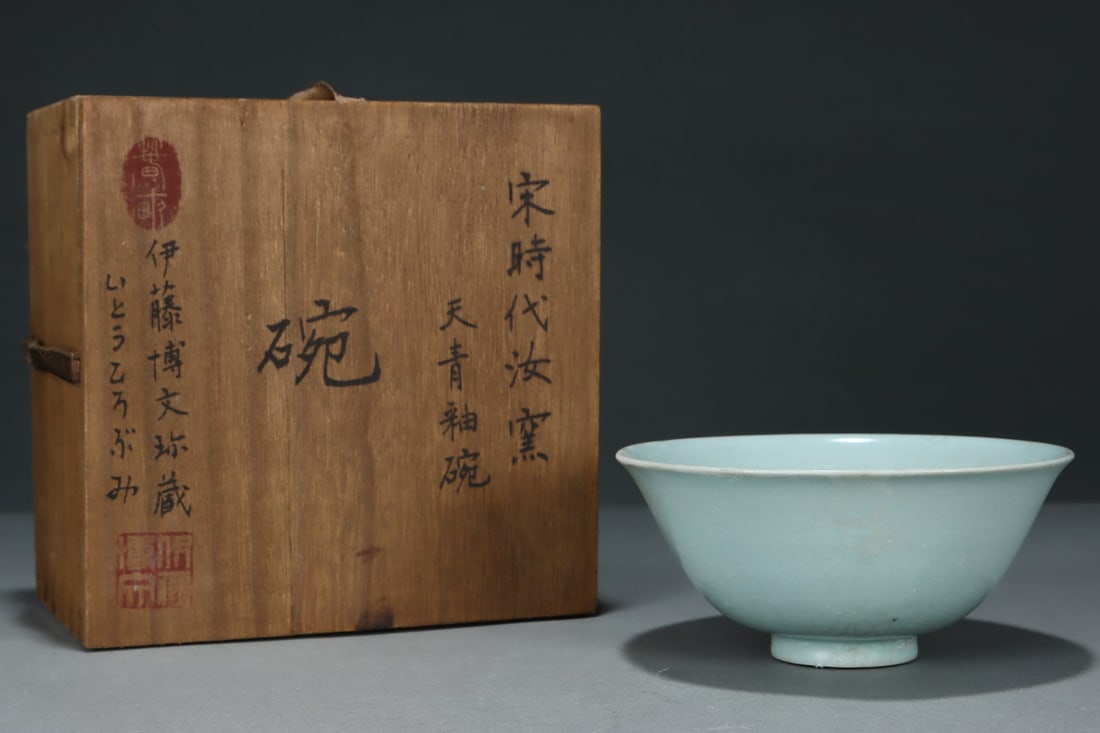 宋時代汝窯
天青釉碗
碗
伊藤博文珎蔵
いとうひろぶみ